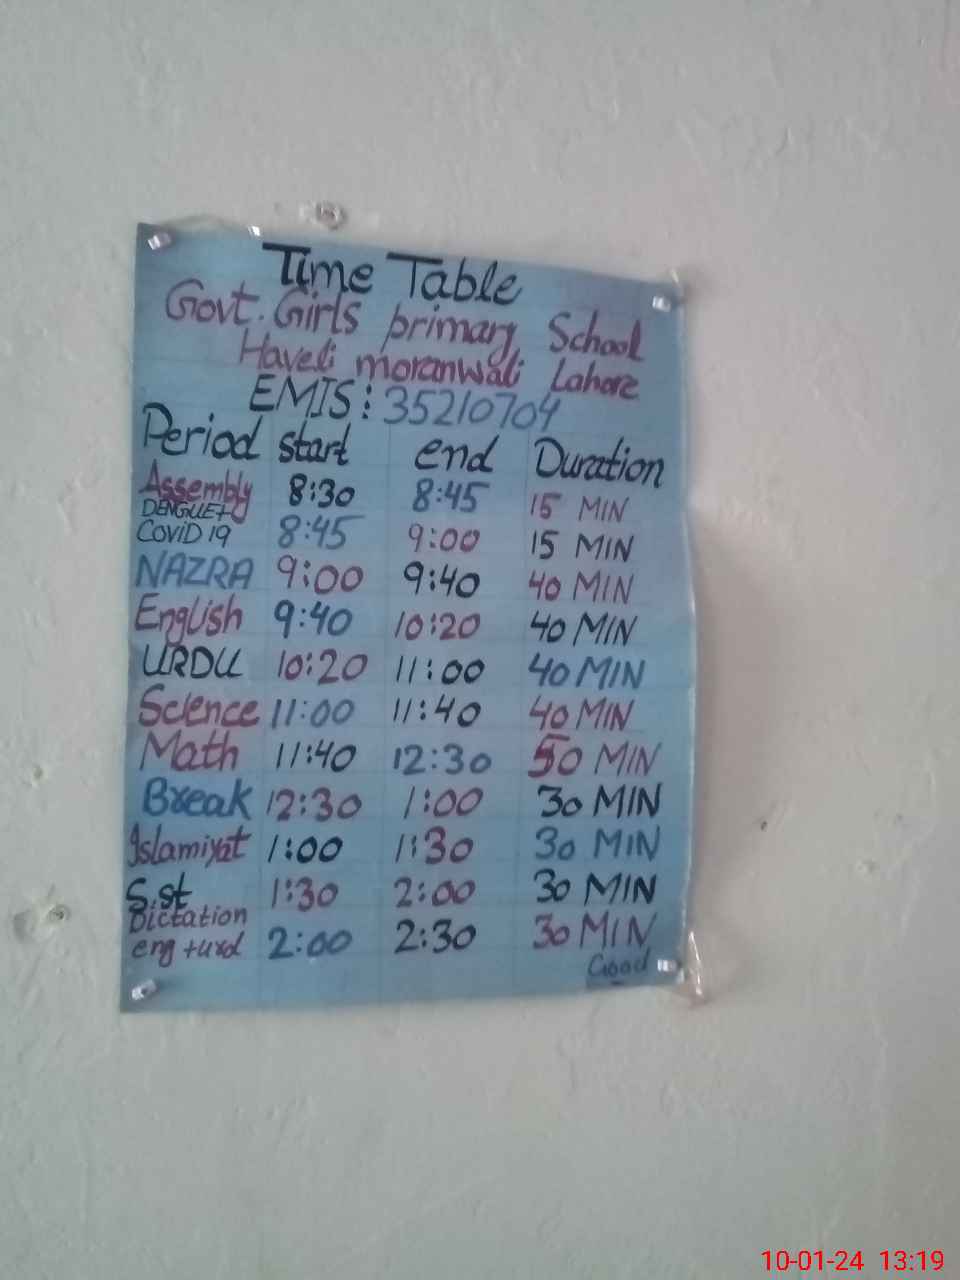 Time Table
Govt. Girls primary School
Haveli moranwali Lahore
EMIS: 35210704
Period start end Duration
Assembly 8:30 8:45 15 MIN
DENGUE+
COVID 19 8:45 9:00 15 MIN
NAZRA 9:00 9:40 40 MIN
English 9:40 10:20 40 MIN
URDU 10:20 11:00 40 MIN
Science 11:00 11:40 40 MIN
Math 11:40 12:30 50 MIN
Break 12:30 1:00 30 MIN
Islamiyat 1:00 1:30 30 MIN
S.st 1:30 2:00 30 MIN
Dictation
eng +urd 2:00 2:30 30 MIN
Good
10-01-24 13:19